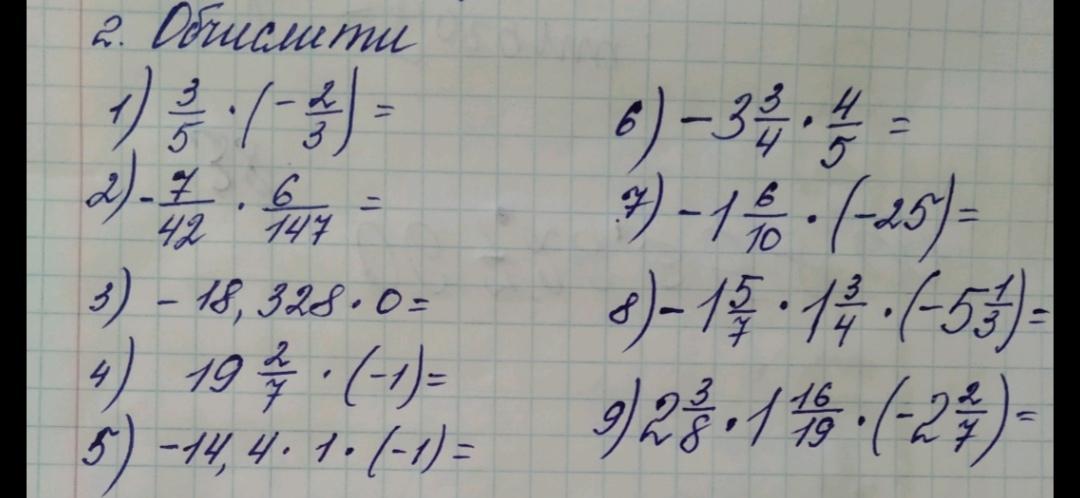 2. Обчислити
1) 3/5 · (- 2/3) =
2) - 7/42 · 6/147 =
3) - 18,328 · 0 =
4) 19 2/7 · (-1) =
5) -14,4 · 1 · (-1) =
6) - 3 3/4 · 4/5 =
7) - 1 6/10 · (-25) =
8) - 1 5/7 · 1 3/4 · (-5 1/3) =
9) 2 3/8 · 1 16/19 · (-2 2/7) =